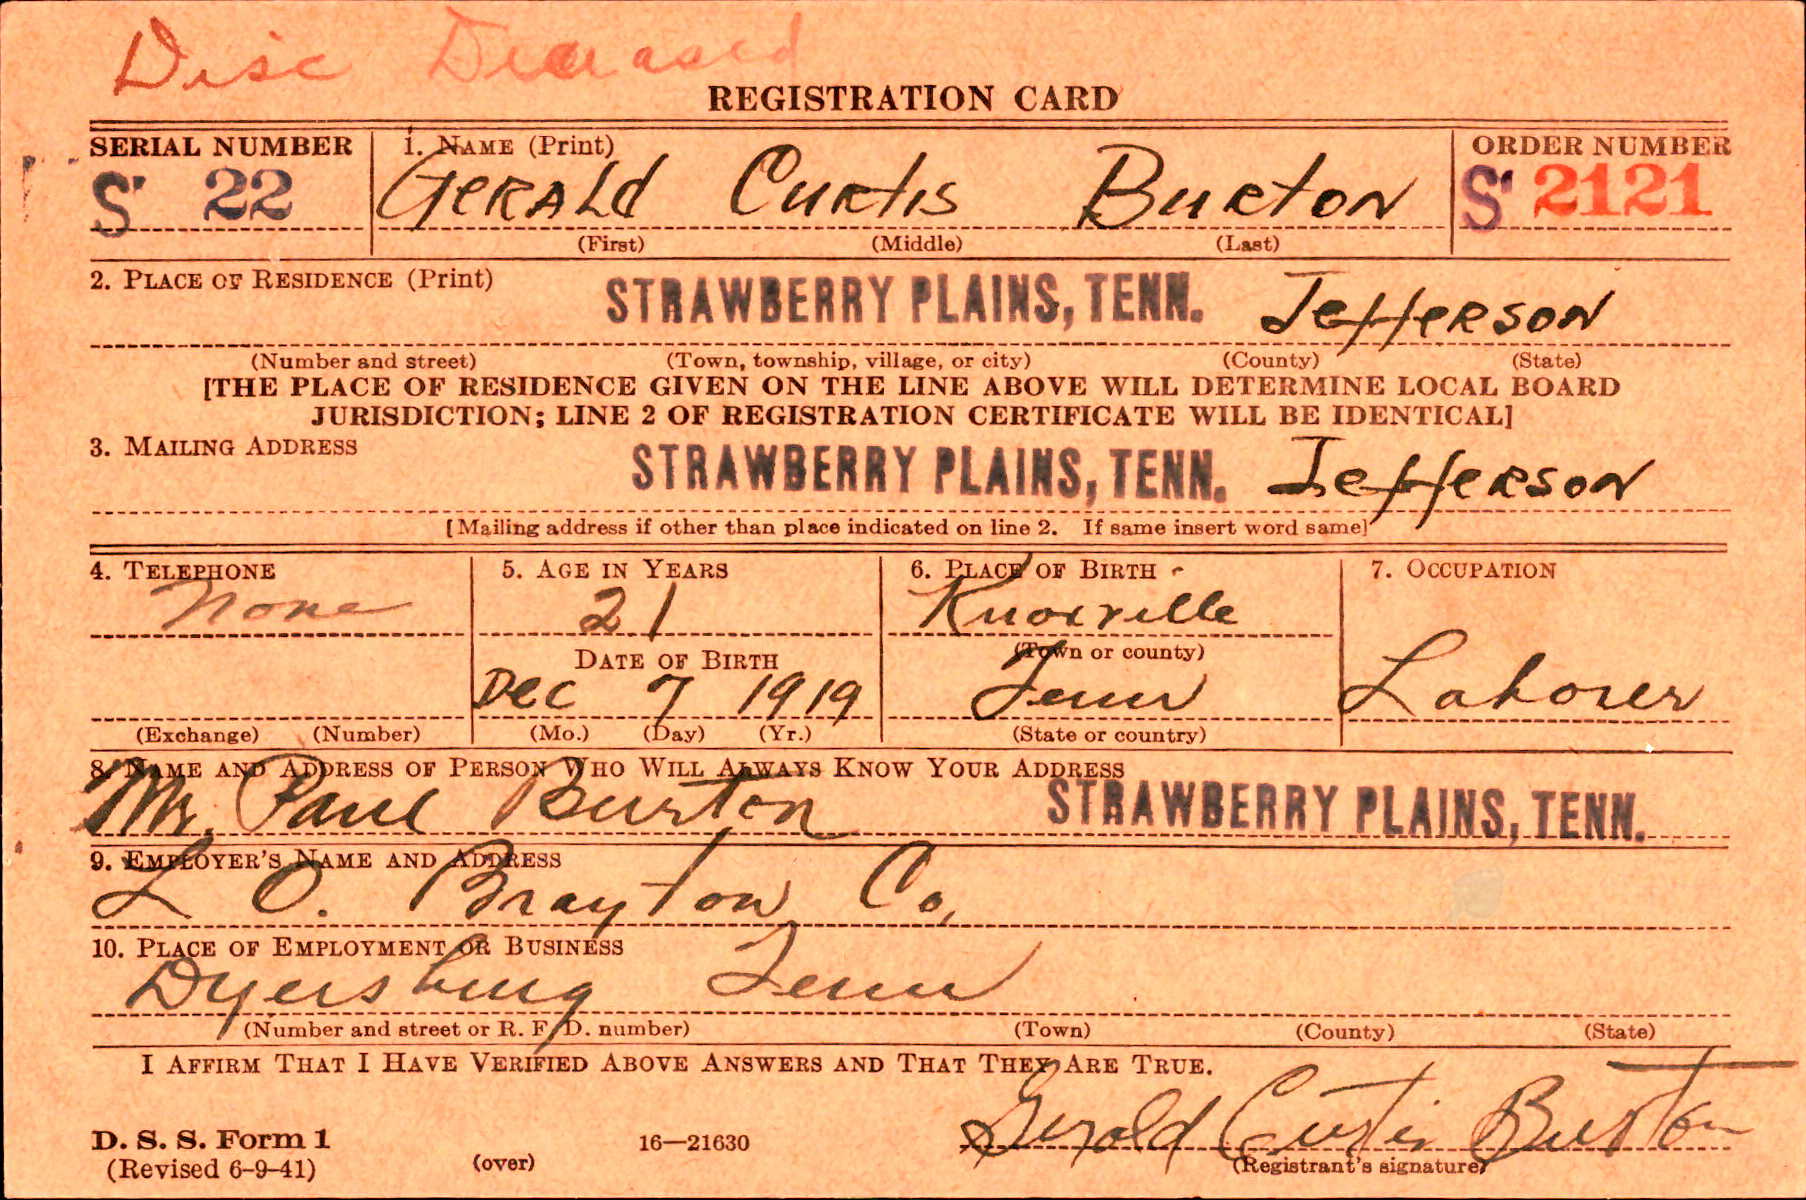 Disc Deceased
REGISTRATION CARD
SERIAL NUMBER 1. NAME (Print) ORDER NUMBER
S 22 GERALD Curtis Burton S 2121
(First) (Middle) (Last)
2. PLACE OF RESIDENCE (Print)
STRAWBERRY PLAINS, TENN. Jefferson
(Number and street) (Town, township, village, or city) (County) (State)
[THE PLACE OF RESIDENCE GIVEN ON THE LINE ABOVE WILL DETERMINE LOCAL BOARD
JURISDICTION; LINE 2 OF REGISTRATION CERTIFICATE WILL BE IDENTICAL]
3. MAILING ADDRESS
STRAWBERRY PLAINS, TENN. Jefferson
[Mailing address if other than place indicated on line 2. If same insert word same]
4. TELEPHONE 5. AGE IN YEARS 6. PLACE OF BIRTH 7. OCCUPATION
None 21 Knoxville
DATE OF BIRTH (Town or county)
Dec 7 1919 Tenn Laborer
(Exchange) (Number) (Mo.) (Day) (Yr.) (State or country)
8. NAME AND ADDRESS OF PERSON WHO WILL ALWAYS KNOW YOUR ADDRESS
Mr. Paul Burton STRAWBERRY PLAINS, TENN.
9. EMPLOYER'S NAME AND ADDRESS
L O. Brayton Co.
10. PLACE OF EMPLOYMENT OR BUSINESS
Dyersburg Tenn
(Number and street or R. F. D. number) (Town) (County) (State)
I AFFIRM THAT I HAVE VERIFIED ABOVE ANSWERS AND THAT THEY ARE TRUE.
Gerald Curtis Burton
D. S. S. Form 1
(Revised 6-9-41) (over) 16—21630 (Registrant's signature)